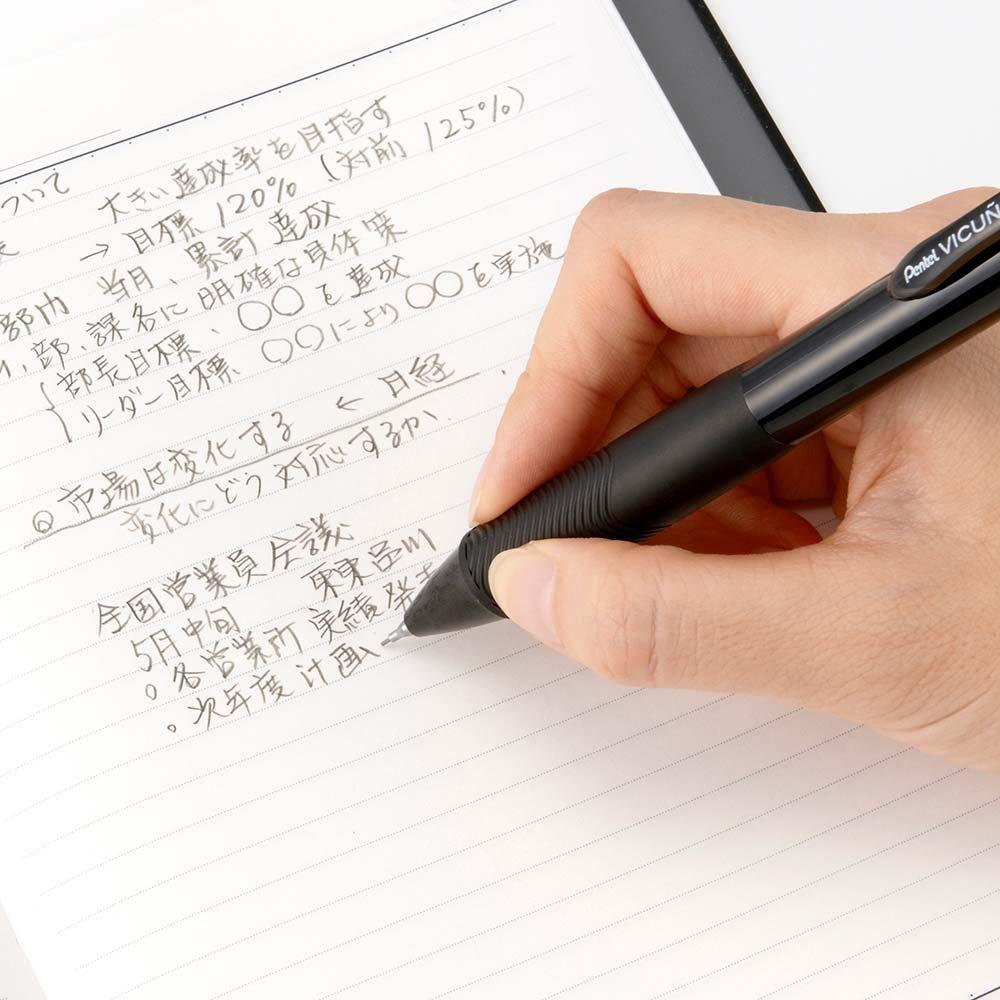 ついて
大きい達成率を目指す
→ 目標 120% (対前 125%)
部内 当月、累計 達成
部、課各に明確な具体策
部長目標、○○を達成
リーダー目標 ○○により○○を実施
◎ 市場は変化する ← 日経
変化にどう対応するか、
全国営業員会議
5月中旬 東京品川
○ 各営業所 実績発
○ 次年度計画、
Pentel VICUÑ